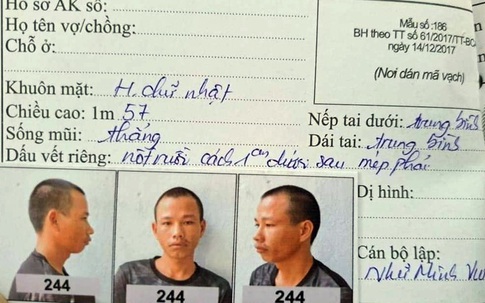 Hồ sơ AK số:
Họ tên vợ/chồng:
Chỗ ở:
Mẫu số :186
BH theo TT số 61/2017/TT-BC
ngày 14/12/2017
(Nơi dán mã vạch)
Khuôn mặt: H. chữ nhật
Chiều cao: 1m 57
Nếp tai dưới: trung bình
Sống mũi: thẳng
Dái tai: trung bình
Dấu vết riêng: nốt ruồi cách 1cm dưới sau mép phải
Dị hình:
Cán bộ lập:
Như Minh
244
244
244